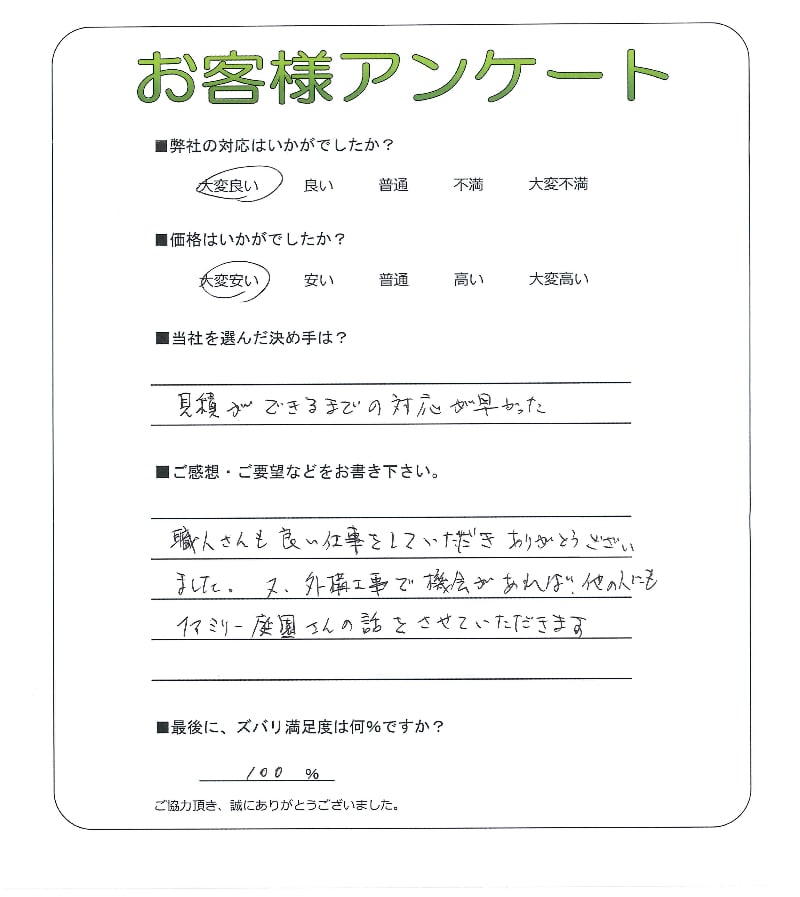 お客様アンケート
■弊社の対応はいかがでしたか？
大変良い 良い 普通 不満 大変不満
■価格はいかがでしたか？
大変安い 安い 普通 高い 大変高い
■当社を選んだ決め手は？
見積ができるまでの対応が早かった
■ご感想・ご要望などをお書き下さい。
職人さんも良い仕事をしていただきありがとうござい
ました。又、外構工事で機会があれば、他の人にも
庭園さんの話をさせていただきます
■最後に、ズバリ満足度は何％ですか？
100 %
ご協力頂き、誠にありがとうございました。